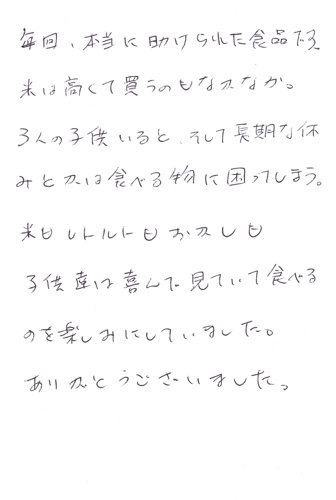 毎回、本当に助けられた食品だえ
米は高くて買うのもなかなか。
3人の子供いると、そして長期な休
みとかは食べる物に困ってしまう。
米もレトルトもおかしも
子供達は喜んで見ていて食べる
のを楽しみにしていました。
ありがとうございました。